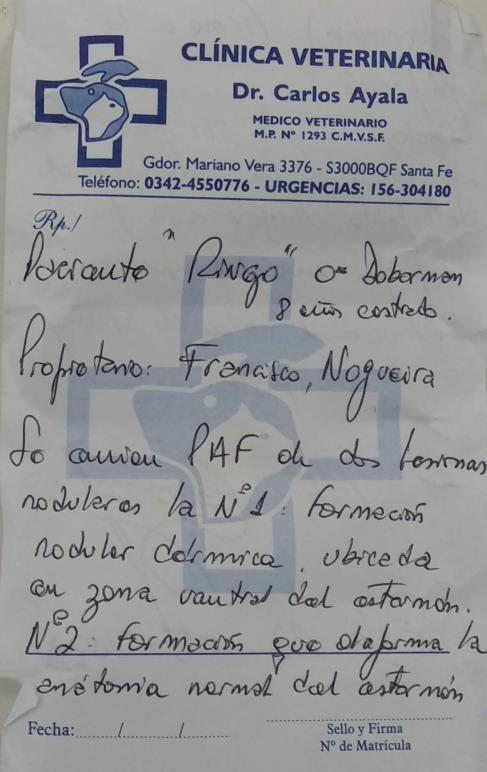 CLÍNICA VETERINARIA
Dr. Carlos Ayala
MEDICO VETERINARIO
M.P. Nº 1293 C.M.V.S.F.
Gdor. Mariano Vera 3376 - S3000BQF Santa Fe
Teléfono: 0342-4550776 - URGENCIAS: 156-304180
Rp./
Paciente "Ringo" ♂ Doberman
8 años castrado.
Propietario: Francisco, Nogueira
Se envian PAF de dos lesiones
nodulares la Nº1: formación
nodular dérmica, ubicada
en zona ventral del esternón.
Nº2: formación que deforma la
anátomia normal del esternón
Fecha: / /
Sello y Firma
Nº de Matrícula